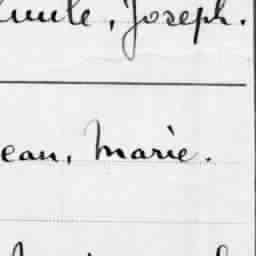 Emile, Joseph.
ean, Marie.